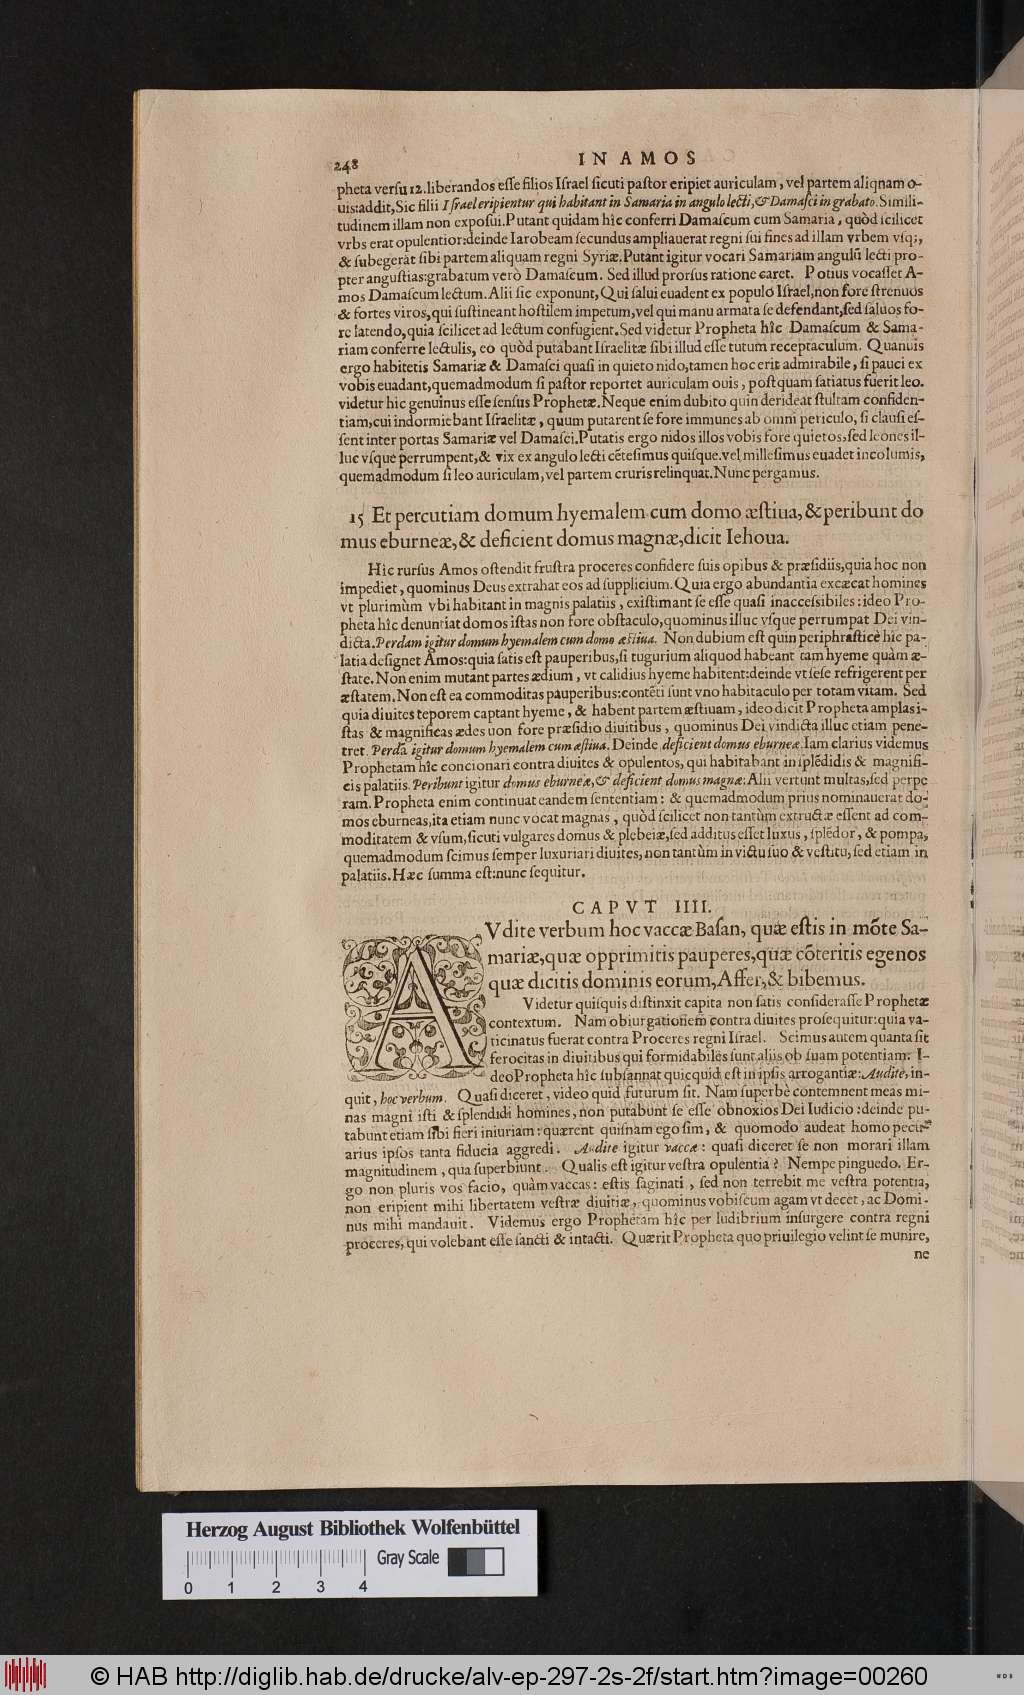 248
IN AMOS
pheta verſu 12. liberandos eſſe filios Iſrael ſicuti paſtor eripiet auriculam, vel partem aliqnam o-
uis: addit, Sic filii Iſrael eripientur qui habitant in Samaria in angulo lecti, & Damaſci in grabato. Simili-
tudinem illam non expoſui. Putant quidam hîc conferri Damaſcum cum Samaria, quòd ſcilicet
vrbs erat opulentior: deinde Iarobeam ſecundus ampliauerat regni ſui fines ad illam vrbem vſq;,
& ſubegerāt ſibi partem aliquam regni Syriæ. Putant igitur vocari Samariam angulū lecti pro-
pter anguſtias: grabatum verò Damaſcum. Sed illud prorſus ratione caret. Potius vocaſſet A-
mos Damaſcum lectum. Alii ſic exponunt, Qui ſalui euadent ex populo Iſrael, non fore ſtrenuos
& fortes viros, qui ſuſtineant hoſtilem impetum, vel qui manu armata ſe defendant, ſed ſaluos fo-
re latendo, quia ſcilicet ad lectum confugient. Sed videtur Propheta hîc Damaſcum & Sama-
riam conferre lectulis, eo quòd putabant Iſraelitæ ſibi illud eſſe tutum receptaculum. Quanuis
ergo habitetis Samariæ & Damaſci quaſi in quieto nido, tamen hoc erit admirabile, ſi pauci ex
vobis euadant, quemadmodum ſi paſtor reportet auriculam ouis, poſtquam ſatiatus fuerit leo.
videtur hic genuinus eſſe ſenſus Prophetæ. Neque enim dubito quin derideat ſtultam confiden-
tiam, cui indormiebant Iſraelitæ, quum putarent ſe fore immunes ab omni periculo, ſi clauſi eſ-
ſent inter portas Samariæ vel Damaſci. Putatis ergo nidos illos vobis fore quietos, ſed leones il-
luc vſque perrumpent, & vix ex angulo lecti cēteſimus quiſque. vel milleſimus euadet incolumis,
quemadmodum ſi leo auriculam, vel partem cruris relinquat. Nunc pergamus.
15 Et percutiam domum hyemalem cum domo æſtiua, & peribunt do
mus eburneæ, & deficient domus magnæ, dicit Iehoua.
Hic rurſus Amos oſtendit fruſtra proceres confidere ſuis opibus & præſidiis, quia hoc non
impediet, quominus Deus extrahat eos ad ſupplicium. Quia ergo abundantia excæcat homines
vt plurimùm vbi habitant in magnis palatiis, exiſtimant ſe eſſe quaſi inacceſsibiles: ideo Pro-
pheta hîc denuntiat domos iſtas non fore obſtaculo, quominus illuc vſque perrumpat Dei vin-
dicta. Perdam igitur domum hyemalem cum domo æſtiua. Non dubium eſt quin periphraſticè hîc pa-
latia deſignet Amos: quia ſatis eſt pauperibus, ſi tugurium aliquod habeant tam hyeme quàm æ-
ſtate. Non enim mutant partes ædium, vt calidius hyeme habitent: deinde vt ſeſe refrigerent per
æſtatem. Non eſt ea commoditas pauperibus: contēti ſunt vno habitaculo per totam vitam. Sed
quia diuites teporem captant hyeme, & habent partem æſtiuam, ideo dicit Propheta amplas i-
ſtas & magnificas ædes uon fore præſidio diuitibus, quominus Dei vindicta illuc etiam pene-
tret. Perdā igitur domum hyemalem cum æſtiua. Deinde deficient domus eburneæ. Iam clarius videmus
Prophetam hîc concionari contra diuites & opulentos, qui habitabant in ſplēdidis & magnifi-
cis palatiis. Peribunt igitur domus eburneæ, & deficient domus magnæ: Alii vertunt multas, ſed perpe
ram. Propheta enim continuat eandem ſententiam: & quemadmodum prius nominauerat do-
mos eburneas, ita etiam nunc vocat magnas, quòd ſcilicet non tantùm extructæ eſſent ad com-
moditatem & vſum, ſicuti vulgares domus & plebeiæ, ſed additus eſſet luxus, ſplēdor, & pompa,
quemadmodum ſcimus ſemper luxuriari diuites, non tantùm in victu ſuo & veſtitu, ſed etiam in
palatiis. Hæc ſumma eſt: nunc ſequitur.
CAPVT IIII.
AVdite verbum hoc vaccæ Baſan, quæ eſtis in mōte Sa-
mariæ, quæ opprimitis pauperes, quæ cōteritis egenos
quæ dicitis dominis eorum, Affer, & bibemus.
Videtur quiſquis diſtinxit capita non ſatis conſideraſſe Prophetæ
contextum. Nam obiurgationem contra diuites proſequitur: quia va-
ticinatus fuerat contra Proceres regni Iſrael. Scimus autem quanta ſit
ferocitas in diuitibus qui formidabiles ſunt aliis ob ſuam potentiam. I-
deo Propheta hîc ſubſannat quicquid eſt in ipſis arrogantiæ: Audite, in-
quit, hoc verbum. Quaſi diceret, video quid futurum ſit. Nam ſuperbè contemnent meas mi-
nas magni iſti & ſplendidi homines, non putabunt ſe eſſe obnoxios Dei Iudicio: deinde pu-
tabunt etiam ſibi fieri iniuriam: quærent quiſnam ego ſim, & quomodo audeat homo pecu-
arius ipſos tanta fiducia aggredi. Audite igitur vaccæ: quaſi diceret ſe non morari illam
magnitudinem, qua ſuperbiunt. Qualis eſt igitur veſtra opulentia? Nempe pinguedo. Er-
go non pluris vos facio, quàm vaccas: eſtis ſaginati, ſed non terrebit me veſtra potentia,
non eripient mihi libertatem veſtræ diuitiæ, quominus vobiſcum agam vt decet, ac Domi-
nus mihi mandauit. Videmus ergo Prophetam hîc per ludibrium inſurgere contra regni
proceres, qui volebant eſſe ſancti & intacti. Quærit Propheta quo priuilegio velint ſe munire,
ne
Herzog August Bibliothek Wolfenbüttel
Gray Scale
0 1 2 3 4
© HAB http://diglib.hab.de/drucke/alv-ep-297-2s-2f/start.htm?image=00260